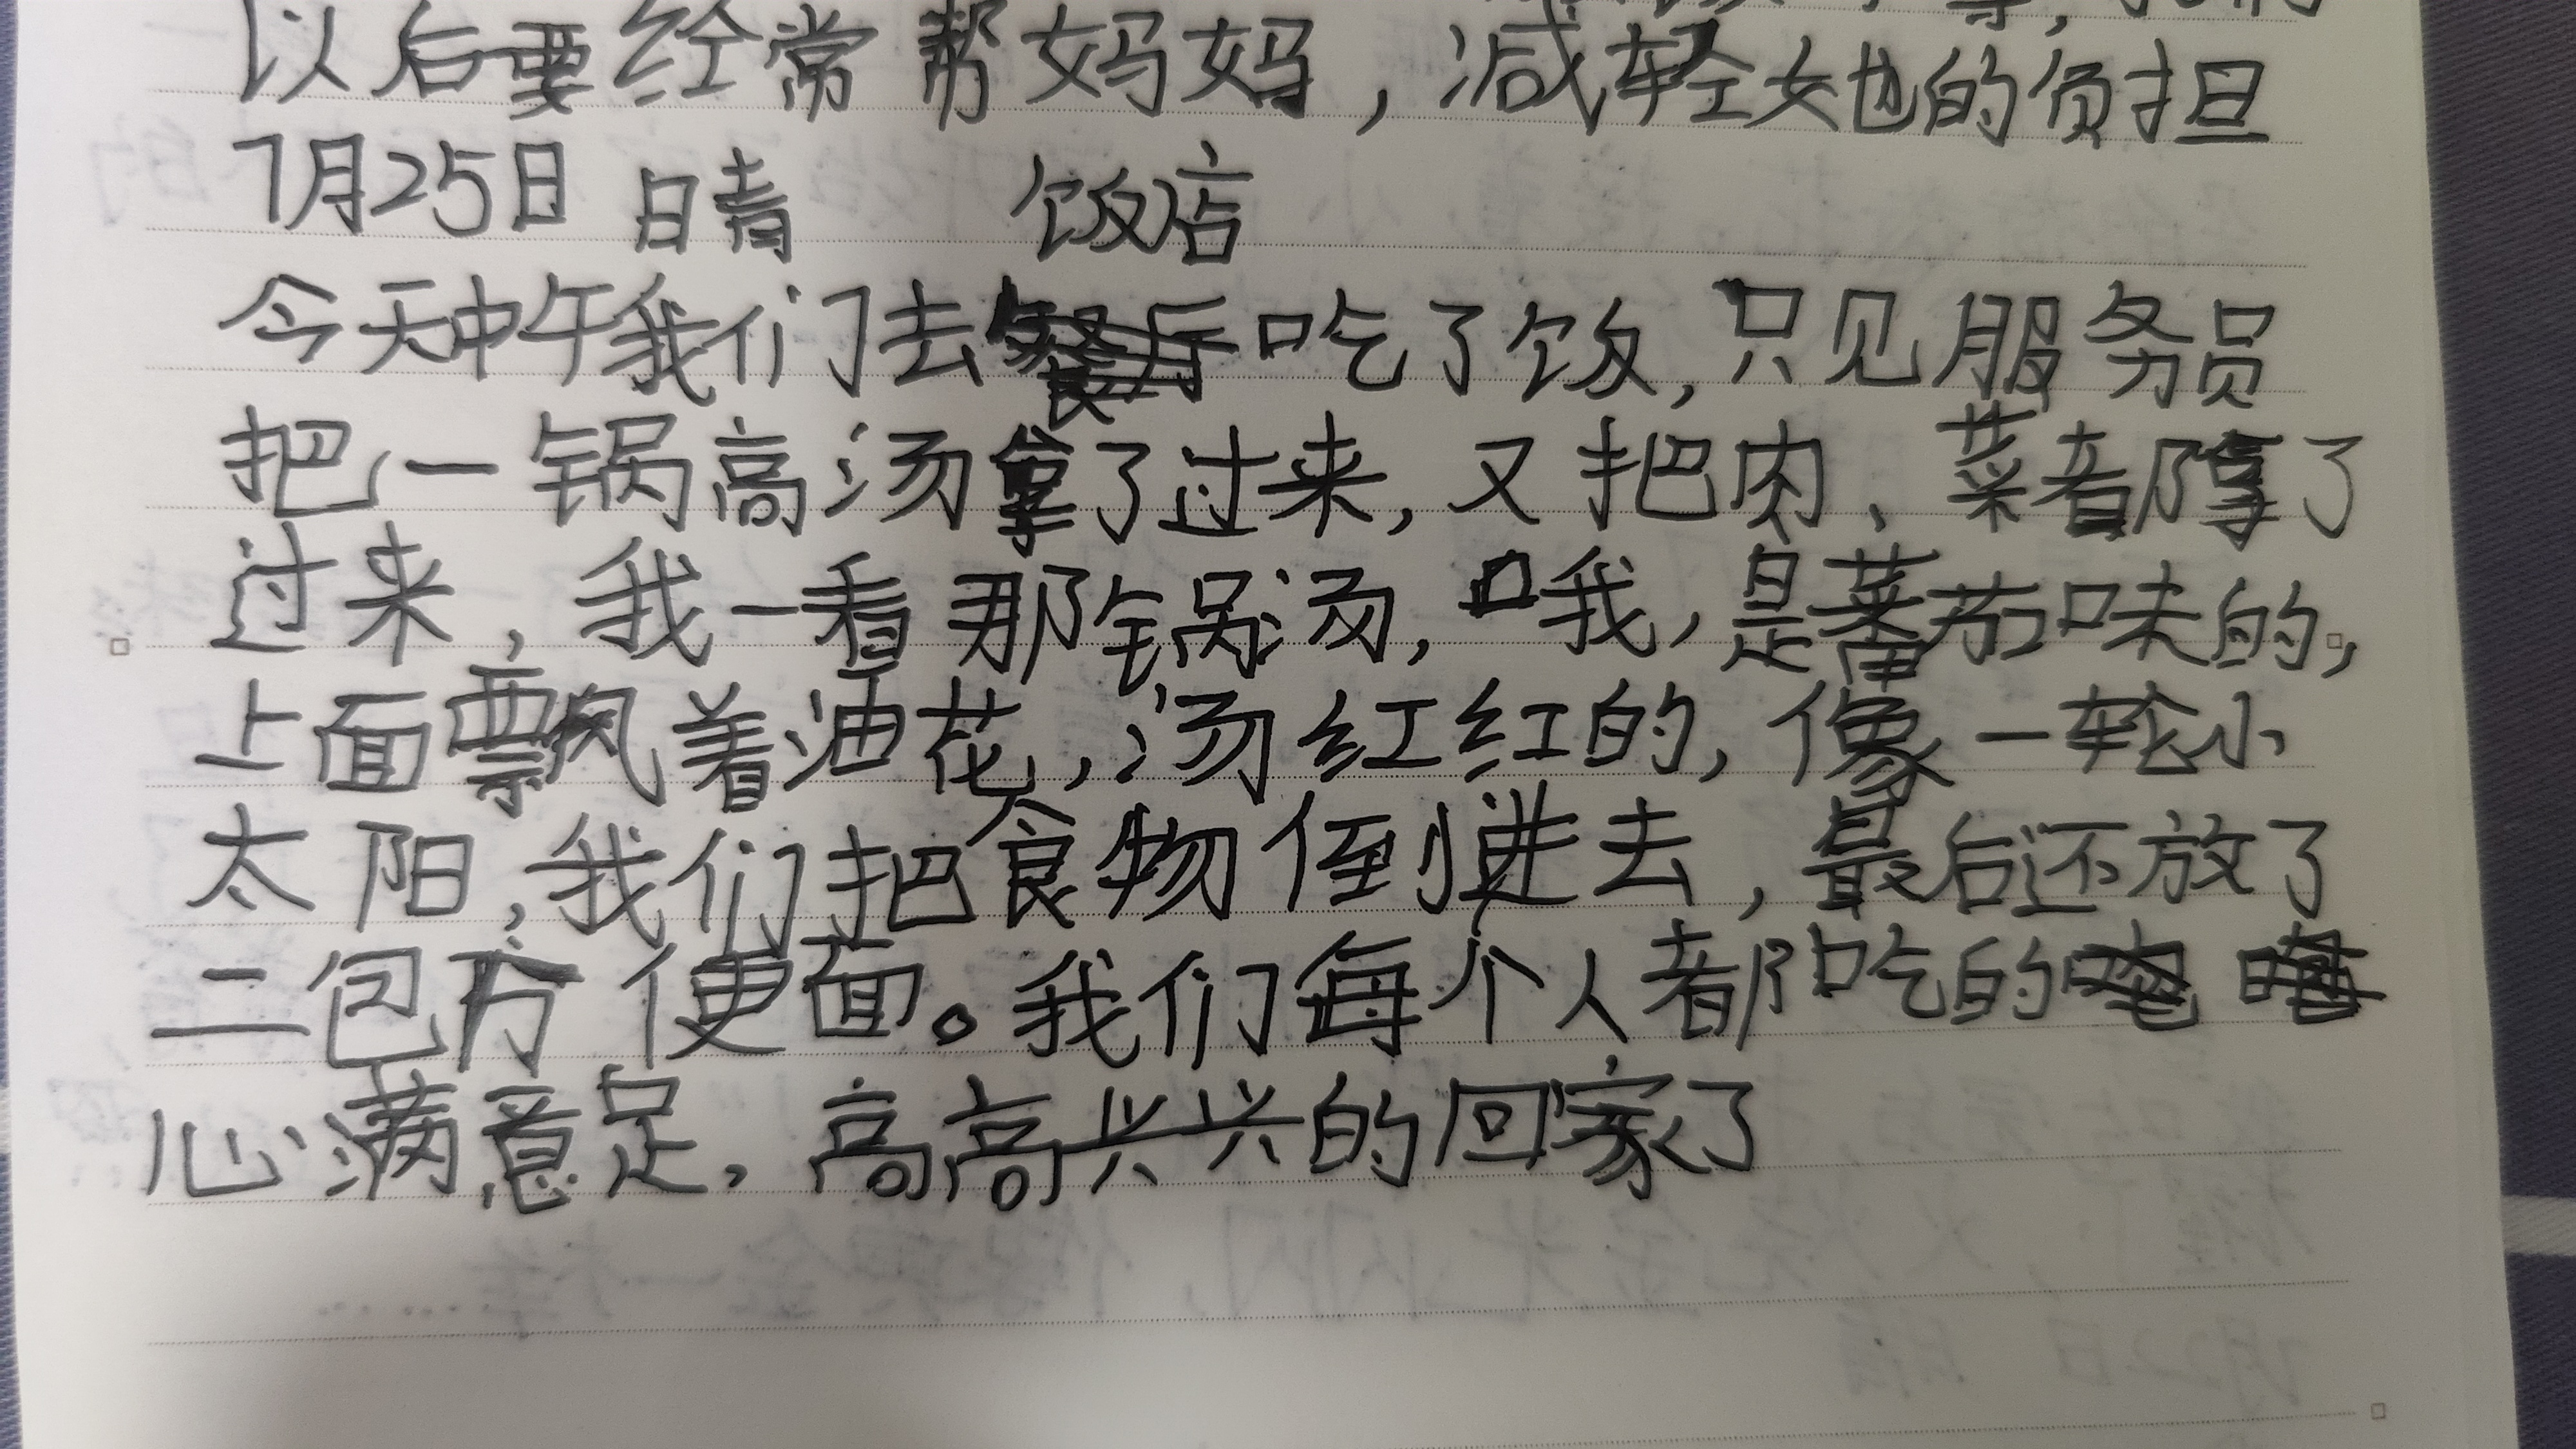 以后要经常帮妈妈,减轻她的负担
7月25日 晴 饭店
今天中午我们去餐厅吃了饭,只见服务员
把一锅高汤拿了过来,又把肉、菜都拿了
过来,我一看那锅汤,哦,是蕃茄味的,
上面飘着油花,汤红红的,像一轮小
太阳,我们把食物倒进去,最后还放了
二包方便面。我们每个人都吃的
心满意足,高高兴兴的回家了